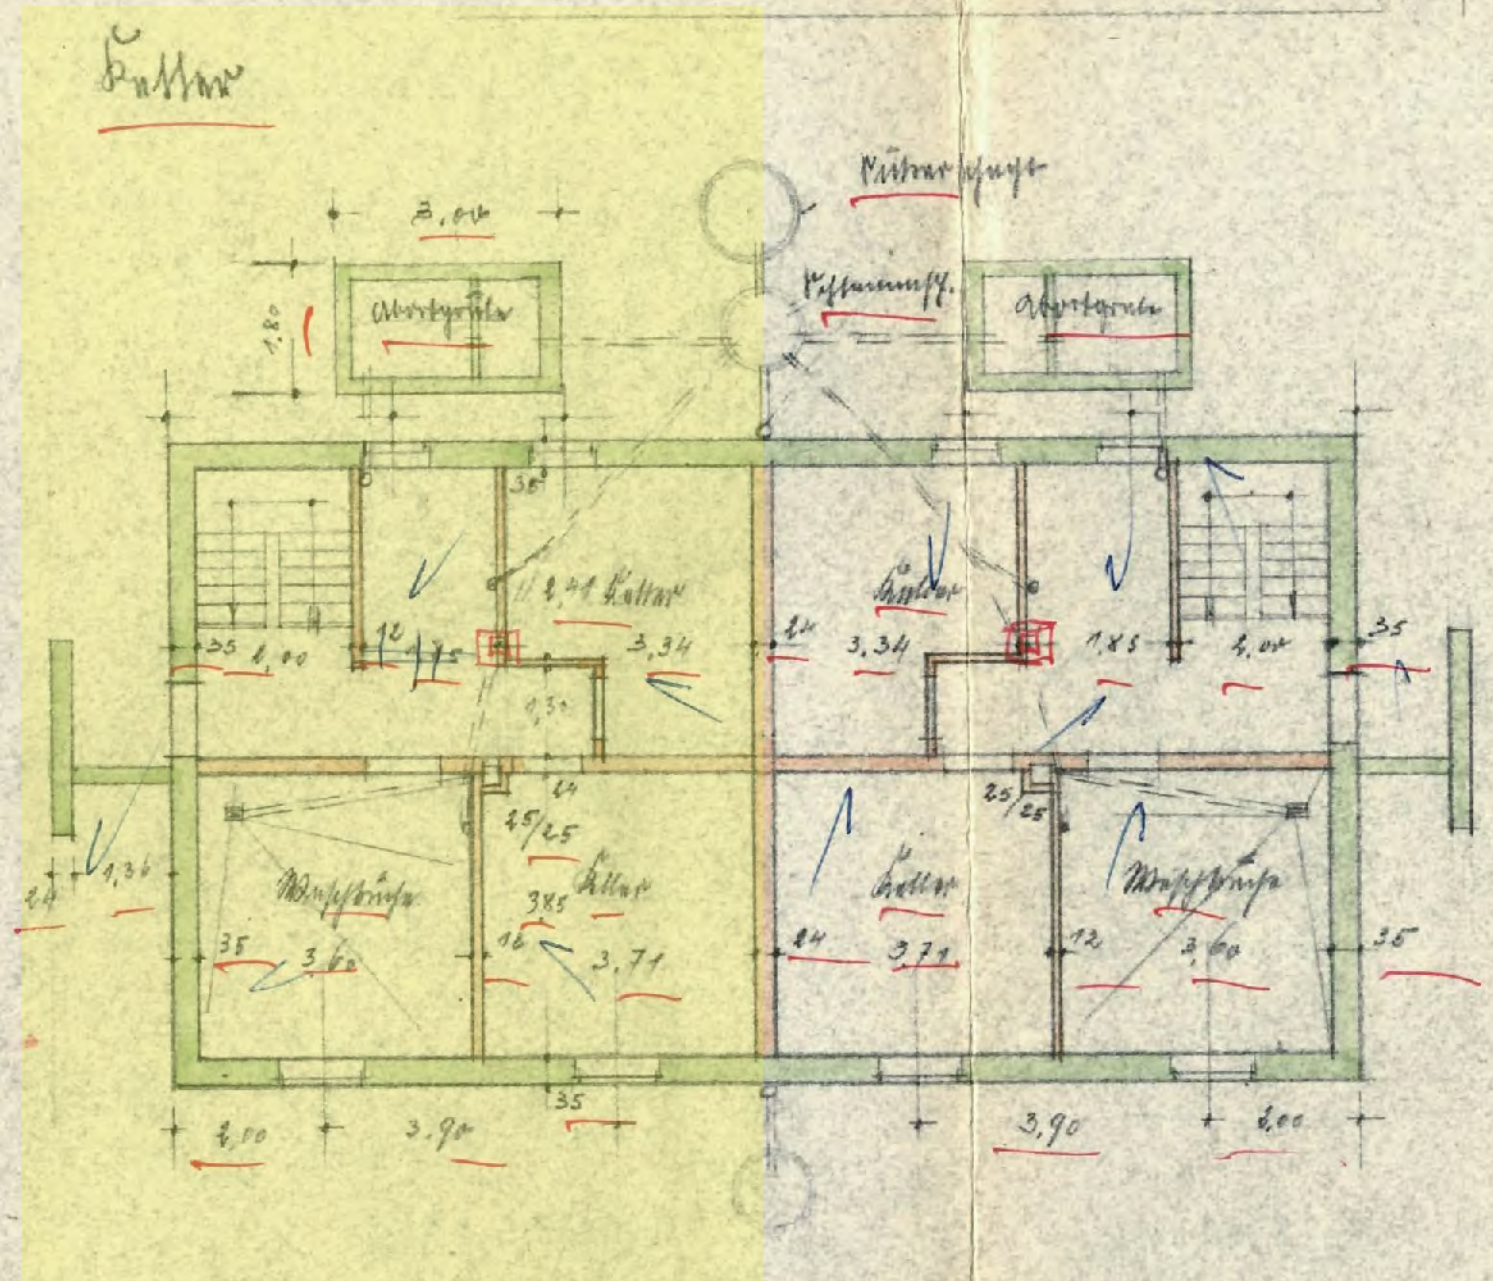 Keller
Sickerschacht
3,00
Schlammf.
Abortgrube
Abortgrube
1,80
35
2,41 Keller
Keller
35
2,00
12
3,34
24
3,34
1,85
2,00
35
1,30
24
25/25
25/25
24
1,36
Waschküche
Keller
Keller
Waschküche
3,85
35
3,60
12
3,71
24
3,71
12
3,60
35
35
2,00
3,90
3,90
2,00